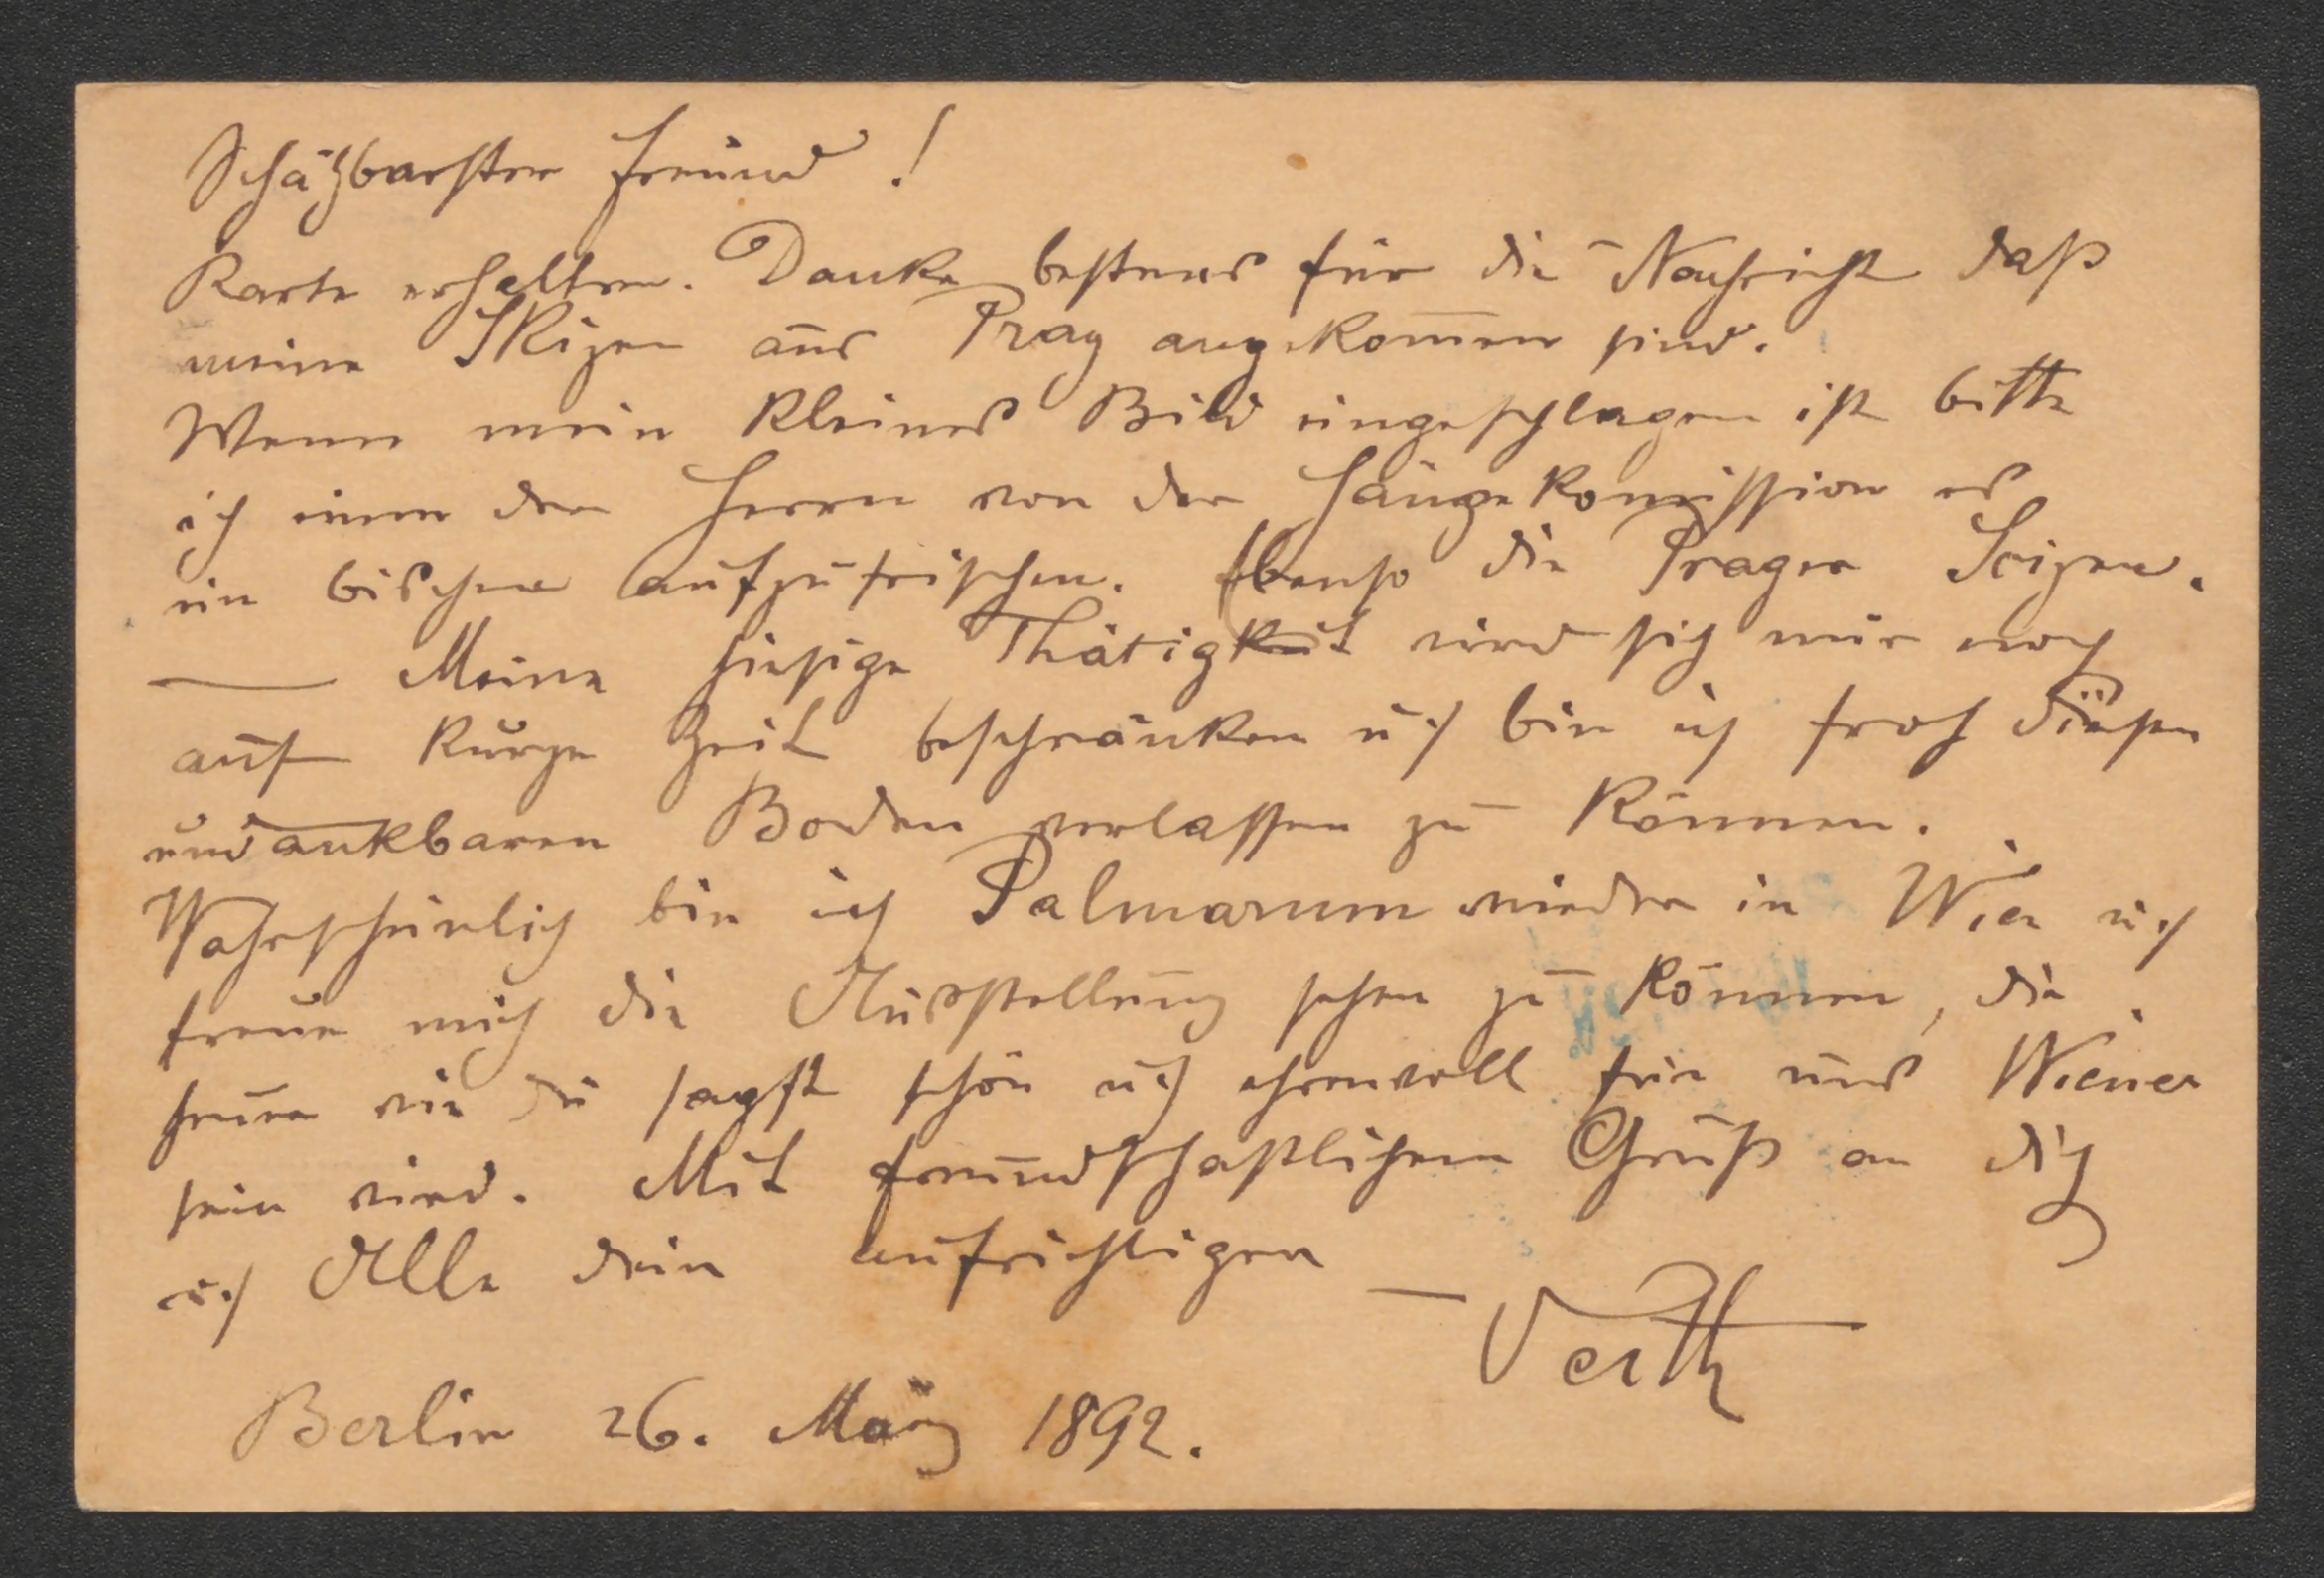 Schätzbarster Freund !
Karte erhalten. Danke bestens für die Nachricht daß
meine Skizen aus Prag angekom̅en sind.
Wenn mein kleines Bild eingeschlagen ist bitte
ich einen der Herrn von der Hängekom̅ission es
ein bischen aufzufrischen. Ebenso die Prager Scizen.
— Meine hiesige Thätigkeit wird sich nur noch
auf kurze Zeit beschränken u. bin ich froh diesen
undankbaren Boden verlassen zu können.
Wahrscheinlich bin ich Palmarum wieder in Wien u.
freue mich die Ausstellung sehen zu können, die
heuer wie du sagst schön u. ehrenvoll für uns Wiener
sein wird. Mit freundschaftlichem Gruß an dich
u. Alle dein aufrichtiger
— Veith
Berlin 26. März 1892.